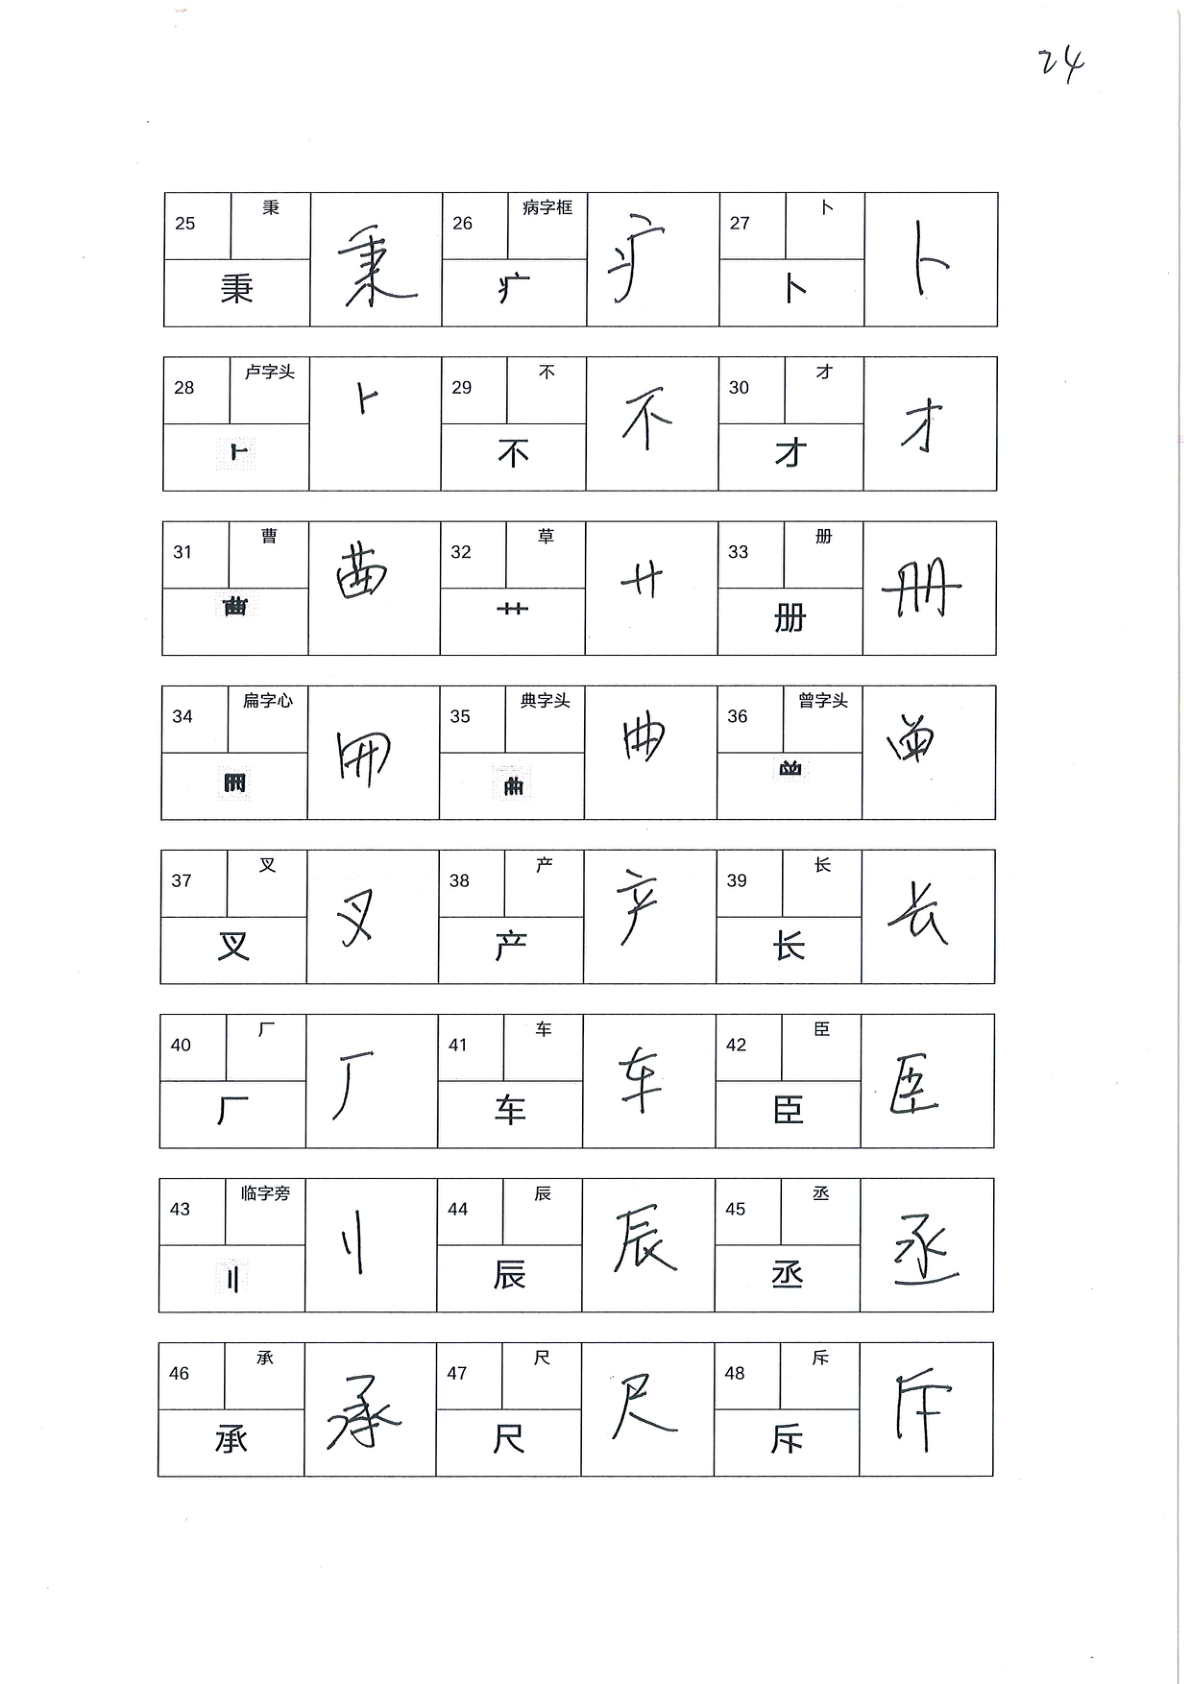 24
25 秉 秉 26 病字框 疒 27 卜 卜
秉 疒 卜
28 卢字头 ⺊ 29 不 不 30 才 才
⺊ 不 才
31 曹 32 草 艹 33 册 册
艹 册
34 扁字心 35 典字头 36 曾字头
37 叉 叉 38 产 产 39 长 长
叉 产 长
40 厂 厂 41 车 车 42 臣 臣
厂 车 臣
43 临字旁 〢 44 辰 辰 45 丞 丞
〢 辰 丞
46 承 承 47 尺 尺 48 斥
承 尺 斥